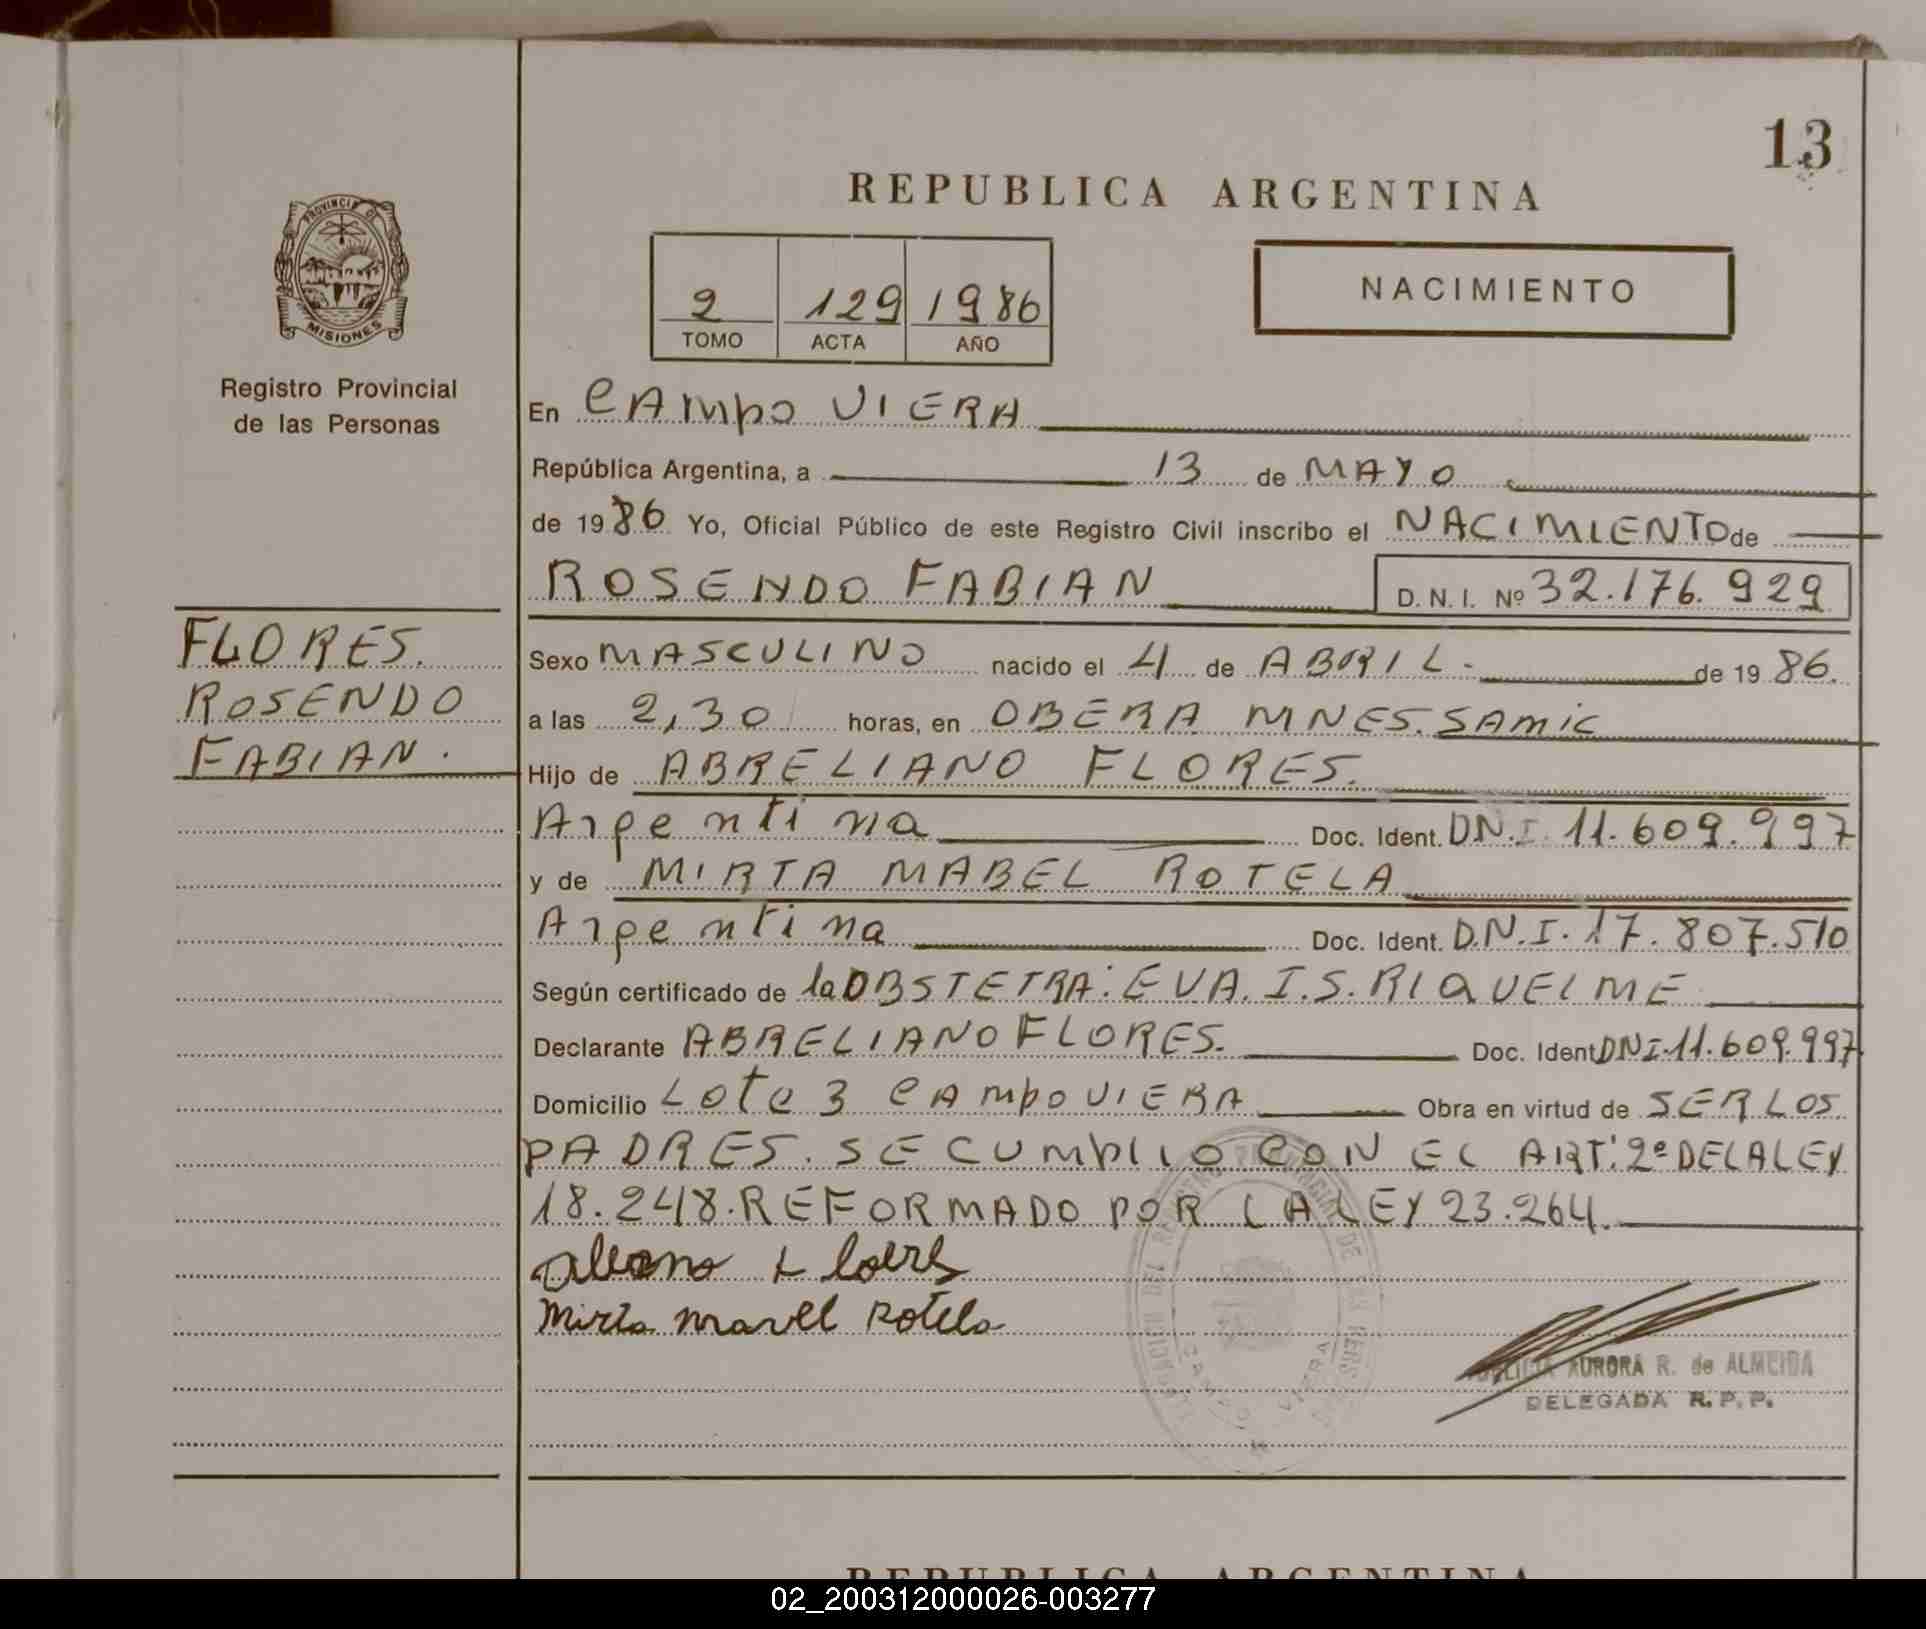 13
REPUBLICA ARGENTINA
PROVINCIA DE
MISIONES
Registro Provincial
de las Personas
2 129 1986
TOMO ACTA AÑO
NACIMIENTO
En CAMPO VIERA
República Argentina, a 13 de MAYO
de 1986 Yo, Oficial Público de este Registro Civil inscribo el NACIMIENTO de
ROSENDO FABIAN D. N. I. Nº 32.176.929
FLORES.
ROSENDO
FABIAN.
Sexo MASCULINO nacido el 4 de ABRIL. de 1986.
a las 2,30 horas, en OBERA MNES. SAMIC
Hijo de ABRELIANO FLORES.
Argentina Doc. Ident. DN.I. 11.609.997
y de MIRTA MABEL ROTELA
Argentina Doc. Ident. D.N.I. 17.807.510
Según certificado de la OBSTETRA: EVA. I.S. RIQUELME
Declarante ABRELIANO FLORES. Doc. Ident DNI.11.609.997
Domicilio Lote 3 CAMPO VIERA Obra en virtud de SER LOS
PADRES. SE CUMPLIO CON EL ART: 2º DE LA LEY
18.248. REFORMADO POR LA LEY 23.264.
Mirta Mavel Rotela
CAMPO VIERA
AURORA R. de ALMEIDA
DELEGADA R. P. P.
REPUBLICA ARGENTINA
02_200312000026-003277